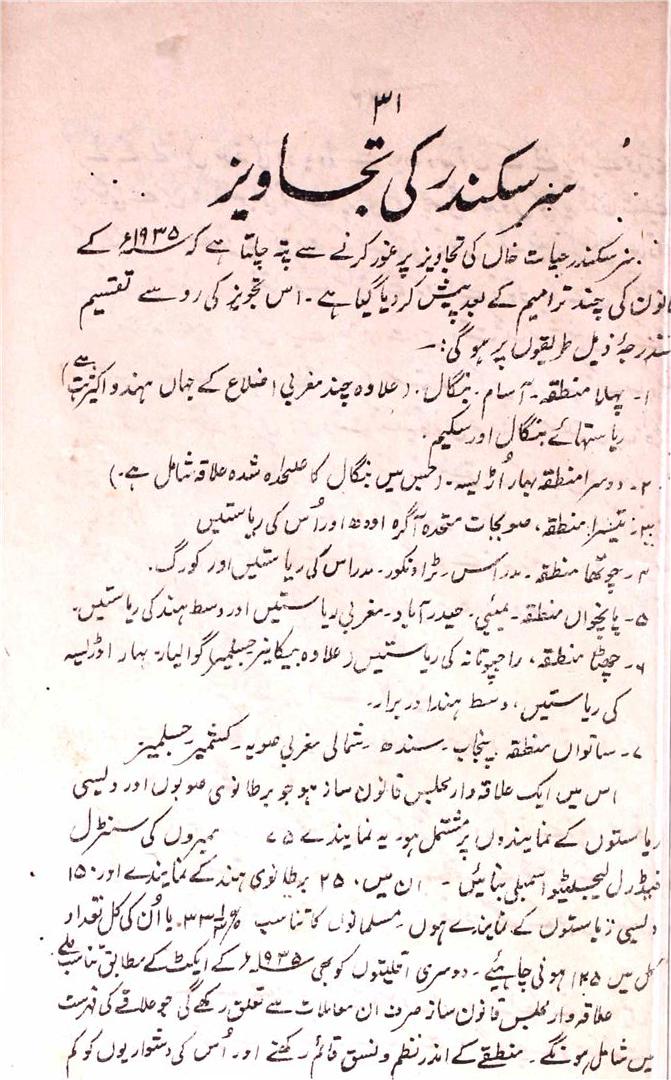 ۳۱
سر سکندر کی تجاویز
سر سکندر حیات خاں کی تجاویز پر غور کرنے سے پتہ چلتا ہے کہ ۱۹۳۵ء کے
انون کی چند ترامیم کے بعد پیش کر دیا گیا ہے۔ اس تجویز کی رو سے تقسیم
ندرجۂ ذیل طریقوں پر ہو گی:۔
۱۔ پہلا منطقہ۔ آسام۔ بنگال۔ (علاوہ چند مغربی اضلاع کے جہاں ہندو اکثریت ہے)
ریاستہائے بنگال اور سکیم۔
۲۔ دوسرا منطقہ بہار اُڑیسہ۔ (جس میں بنگال کا علیحدہ شدہ علاقہ شامل ہے۔)
۳۔ تیسرا منطقہ، صوبجات متحدہ آگرہ اودھ اور اُس کی ریاستیں
۴۔ چوتھا منطقہ۔ مدراس۔ ٹراونکور۔ مدراس کی ریاستیں اور کورگ۔
۵۔ پانچواں منطقہ۔ بمبئی۔ حیدر آباد۔ مغربی ریاستیں اور وسط ہند کی ریاستیں۔
۶۔ چھٹا منطقہ، راجپوتانہ کی ریاستیں (علاوہ بیکانیر جیسلمیر) گوالیار۔ بہار اوڑیسہ
کی ریاستیں، وسط ہند اور برار۔
۷۔ ساتواں منطقہ۔ پنجاب۔ سندھ۔ شمالی مغربی صوبہ۔ کشمیر۔ جیسلمیر
اس میں ایک علاقہ وار مجلس قانون ساز ہو جو برطانوی صوبوں اور دلیسی
ریاستوں کے نمایندوں پر مشتمل ہو۔ یہ نمایندے ۷۵ ممبروں کی سنٹرل
فیڈرل لیجسلیٹو اسمبلی بنائیں۔ ان میں ۲۵۰ برطانوی ہند کے نمایندے اور ۱۵۰
دلیسی ریاستوں کے نمایندے ہوں۔ مسلمانوں کا تناسب ⅓۳۳٪ یا اُن کی کل تعداد
کل میں ۱۲۵ ہونی چاہیئے۔ دوسری اقلیتوں کو بھی ۱۹۳۵ء کے ایکٹ کے مطابق تناسب ملے
علاقہ وار مجلس قانون ساز صرف ان معاملات سے تعلق رکھے گی جو علاقے کی فہرست
میں شامل ہونگے۔ منطقے کے اندر نظم و نسق قائم رکھنے اور اُس کی دشواریوں کو کم